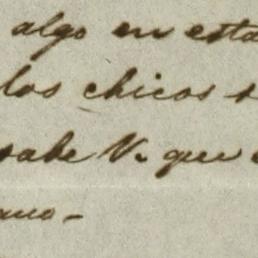 algo en esta
los chicos
sabe V. que